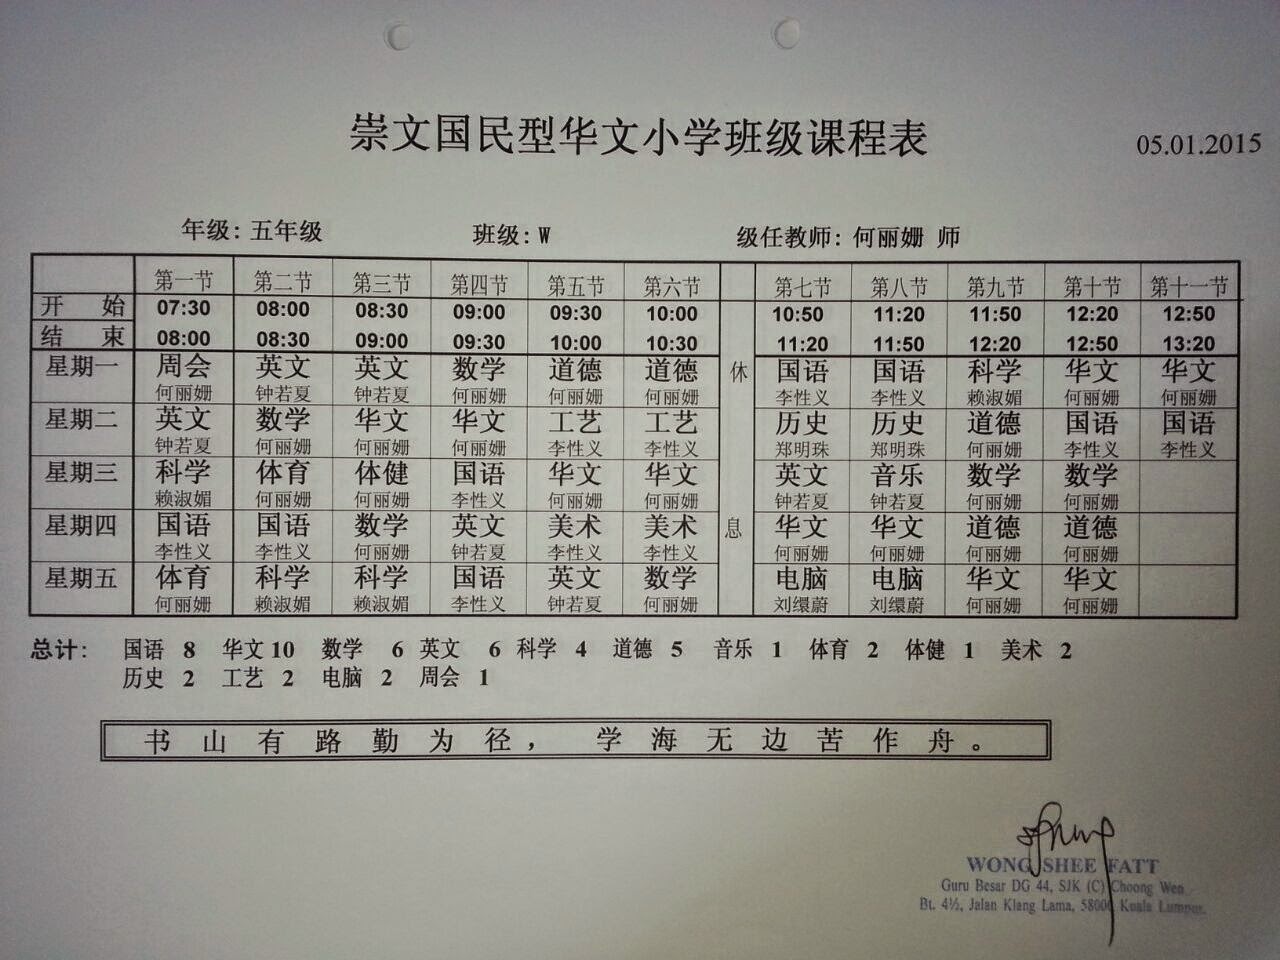 崇文国民型华文小学班级课程表
05.01.2015
年级: 五年级 班级: W 级任教师: 何丽姗 师
第一节 第二节 第三节 第四节 第五节 第六节 第七节 第八节 第九节 第十节 第十一节
开 始 07:30 08:00 08:30 09:00 09:30 10:00 10:50 11:20 11:50 12:20 12:50
结 束 08:00 08:30 09:00 09:30 10:00 10:30 11:20 11:50 12:20 12:50 13:20
星期一 周会 英文 英文 数学 道德 道德 休 国语 国语 科学 华文 华文
何丽姗 钟若夏 钟若夏 何丽姗 何丽姗 何丽姗 李性义 李性义 赖淑媚 何丽姗 何丽姗
星期二 英文 数学 华文 华文 工艺 工艺 历史 历史 道德 国语 国语
钟若夏 何丽姗 何丽姗 何丽姗 李性义 李性义 郑明珠 郑明珠 何丽姗 李性义 李性义
星期三 科学 体育 体健 国语 华文 华文 英文 音乐 数学 数学
赖淑媚 何丽姗 何丽姗 李性义 何丽姗 何丽姗 钟若夏 钟若夏 何丽姗 何丽姗
星期四 国语 国语 数学 英文 美术 美术 息 华文 华文 道德 道德
李性义 李性义 何丽姗 钟若夏 李性义 李性义 何丽姗 何丽姗 何丽姗 何丽姗
星期五 体育 科学 科学 国语 英文 数学 电脑 电脑 华文 华文
何丽姗 赖淑媚 赖淑媚 李性义 钟若夏 何丽姗 刘缳蔚 刘缳蔚 何丽姗 何丽姗
总计: 国语 8 华文 10 数学 6 英文 6 科学 4 道德 5 音乐 1 体育 2 体健 1 美术 2
历史 2 工艺 2 电脑 2 周会 1
书山有路勤为径，学海无边苦作舟。
WONG SHEE FATT
Guru Besar DG 44, SJK (C) Choong Wen
Bt. 4½, Jalan Klang Lama, 58000 Kuala Lumpur.